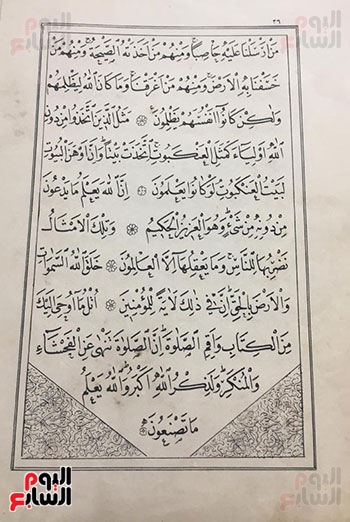 اليوم السابع
٣٦
مَنْ أَرْسَلْنَا عَلَيْهِ حَاصِبًا وَمِنْهُمْ مَنْ أَخَذَتْهُ الصَّيْحَةُ وَمِنْهُمْ مَنْ
خَسَفْنَا بِهِ الْأَرْضَ وَمِنْهُمْ مَنْ أَغْرَقْنَا وَمَا كَانَ اللَّهُ لِيَظْلِمَهُمْ
وَلَكِنْ كَانُوا أَنْفُسَهُمْ يَظْلِمُونَ مَثَلُ الَّذِينَ اتَّخَذُوا مِنْ دُونِ
اللَّهِ أَوْلِيَاءَ كَمَثَلِ الْعَنْكَبُوتِ اتَّخَذَتْ بَيْتًا وَإِنَّ أَوْهَنَ الْبُيُوتِ
لَبَيْتُ الْعَنْكَبُوتِ لَوْ كَانُوا يَعْلَمُونَ إِنَّ اللَّهَ يَعْلَمُ مَا يَدْعُونَ
مِنْ دُونِهِ مِنْ شَيْءٍ وَهُوَ الْعَزِيزُ الْحَكِيمُ وَتِلْكَ الْأَمْثَالُ
نَضْرِبُهَا لِلنَّاسِ وَمَا يَعْقِلُهَا إِلَّا الْعَالِمُونَ خَلَقَ اللَّهُ السَّمَوَاتِ
وَالْأَرْضَ بِالْحَقِّ إِنَّ فِي ذَلِكَ لَآيَةً لِلْمُؤْمِنِينَ اتْلُ مَا أُوحِيَ إِلَيْكَ
مِنَ الْكِتَابِ وَأَقِمِ الصَّلٰوةَ إِنَّ الصَّلٰوةَ تَنْهَى عَنِ الْفَحْشَاءِ
وَالْمُنْكَرِ وَلَذِكْرُ اللَّهِ أَكْبَرُ وَاللَّهُ يَعْلَمُ
مَا تَصْنَعُونَ
اليوم السابع
اليوم السابع